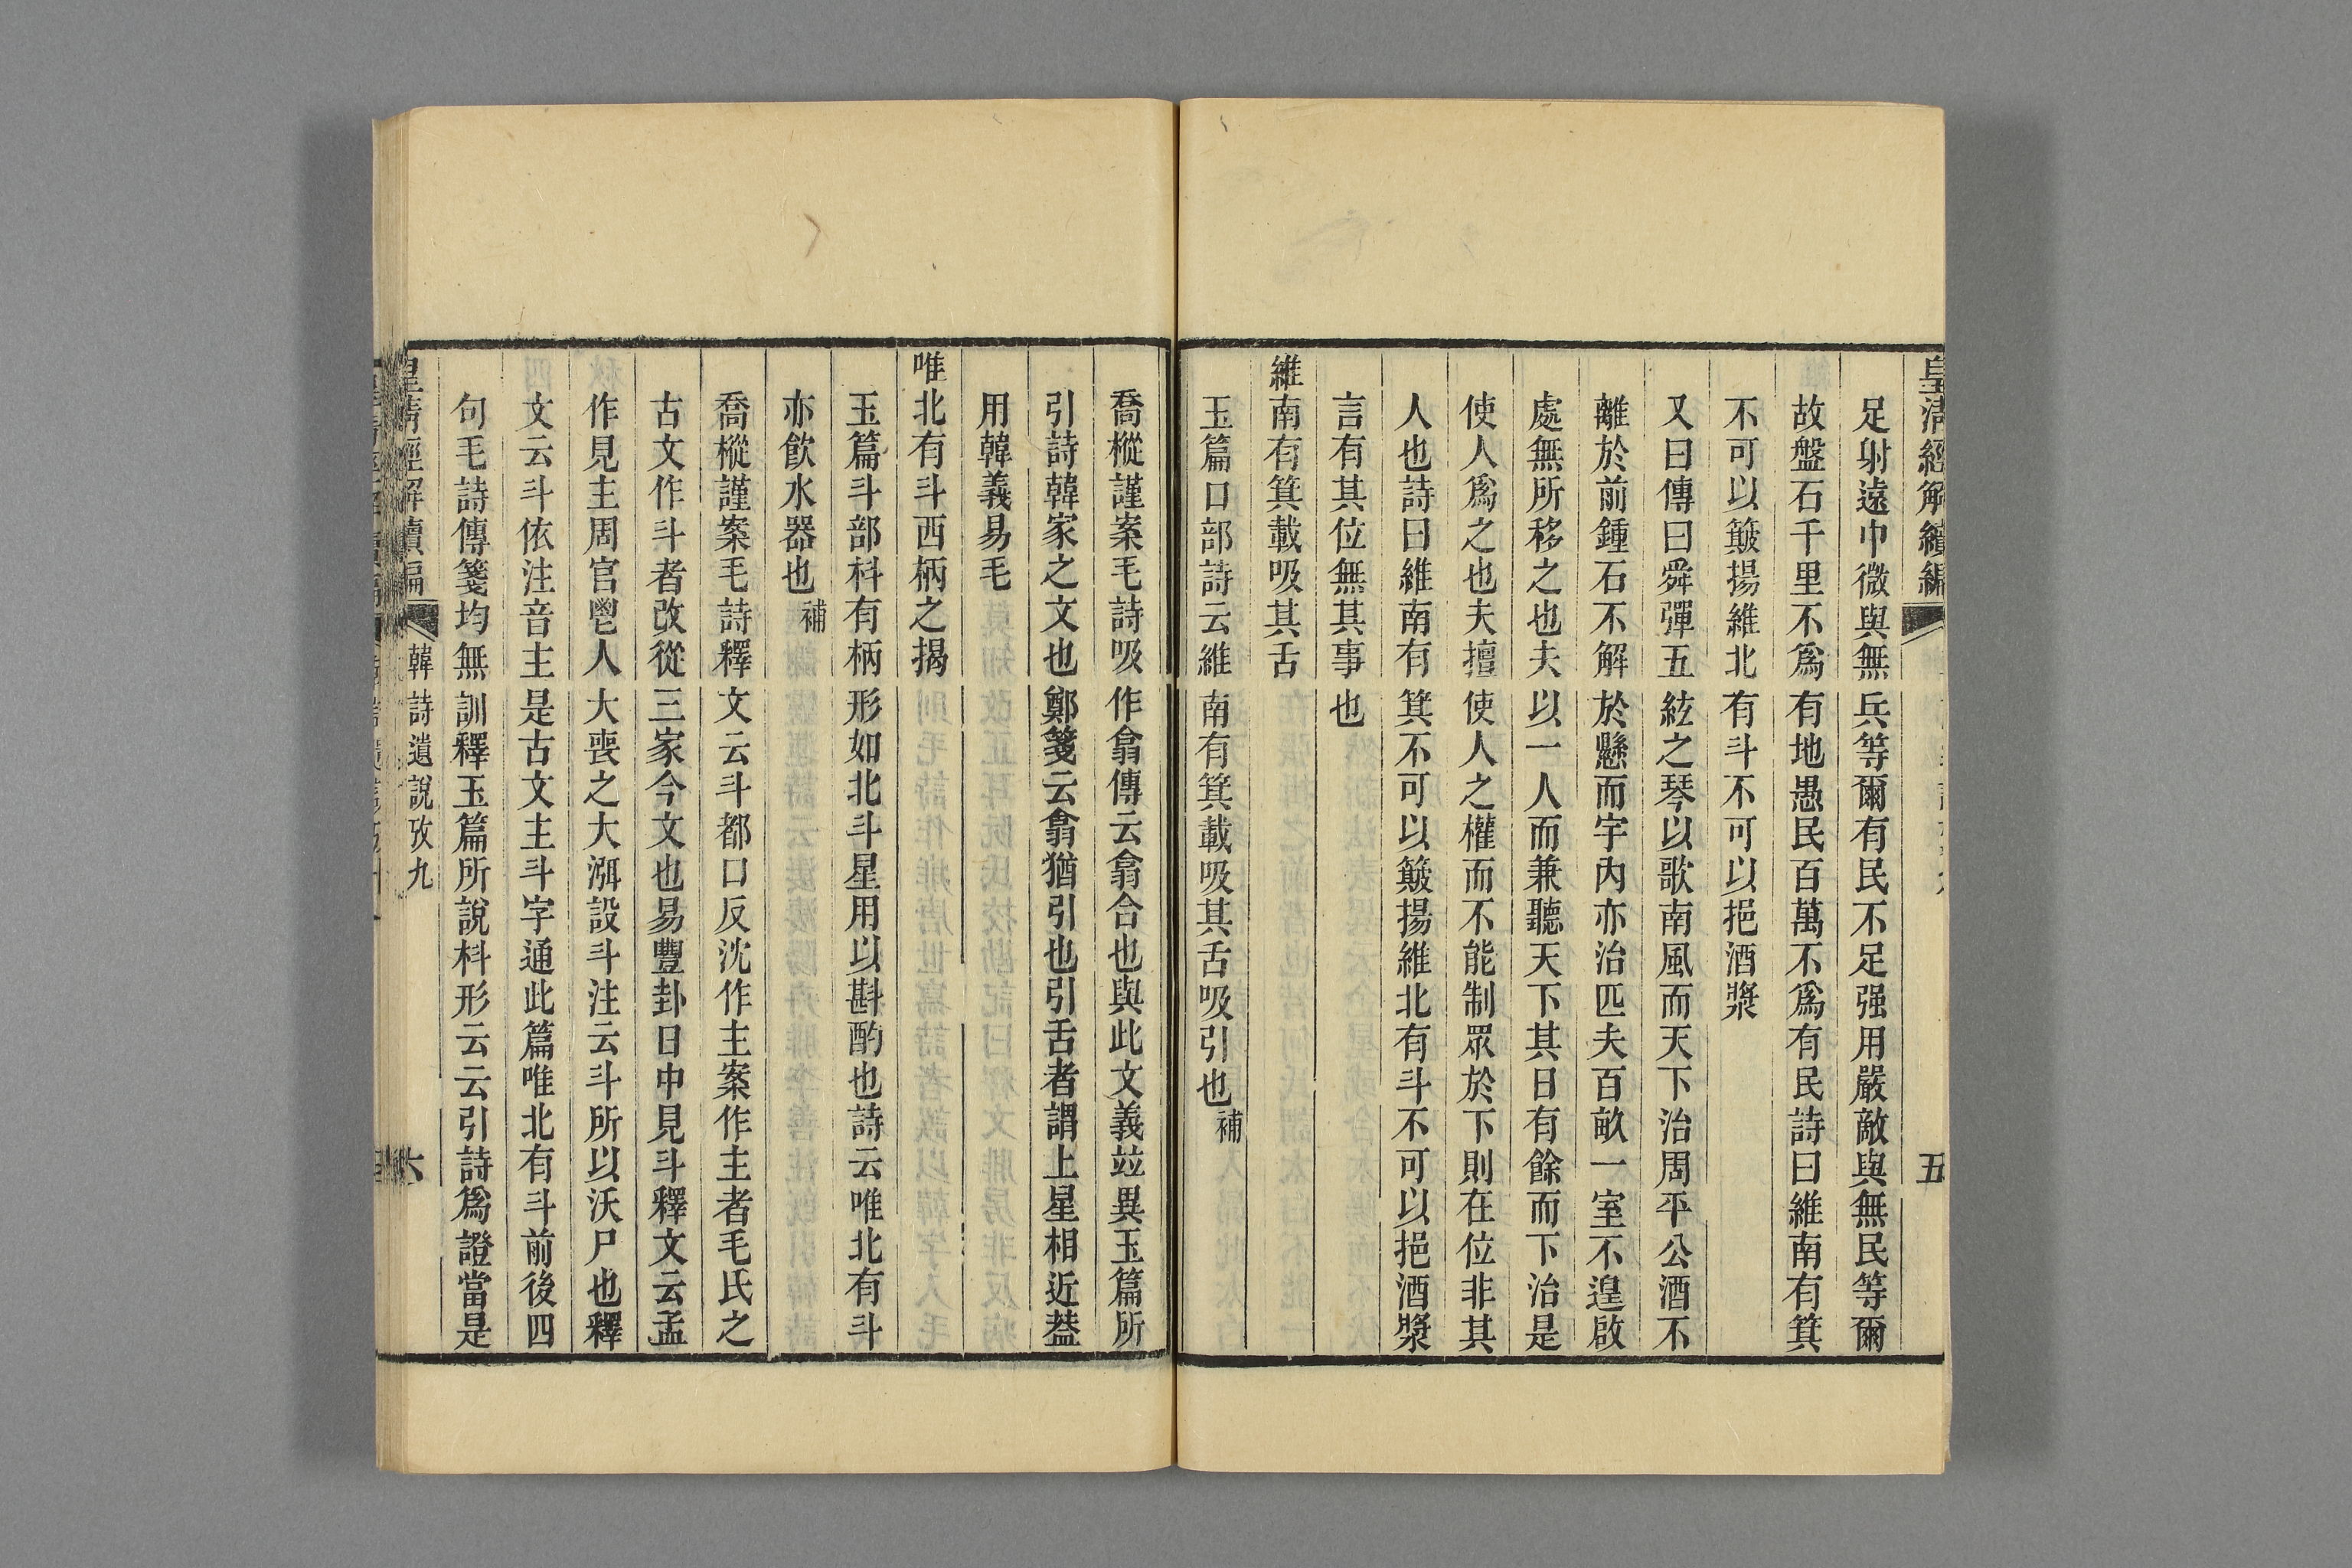 皇淸經解續編
五
足射遠巾微與無兵等爾有民不足强用嚴敵與無民等爾
故盤石千里不爲有地愚民百萬不爲有民詩曰維南有箕
不可以簸揚維北有斗不可以挹酒漿
又曰傳曰舜彈五絃之琴以歌南風而天下治周平公酒不
離於前鍾石不解於懸而宇內亦治匹夫百畝一室不遑啟
處無所移之也夫以一人而兼聽天下其日有餘而下治是
使人爲之也夫擅使人之權而不能制眾於下則在位非其
人也詩曰維南有箕不可以簸揚維北有斗不可以挹酒漿
言有其位無其事也
維南有箕載吸其舌
玉篇口部詩云維南有箕載吸其舌吸引也補
喬樅謹案毛詩吸作翕傳云翕合也與此文義竝異玉篇所
引詩韓家之文也鄭箋云翕猶引也引舌者謂上星相近葢
用韓義易毛
唯北有斗西柄之揭
玉篇斗部枓有柄形如北斗星用以斟酌也詩云唯北有斗
亦飮水器也補
喬樅謹案毛詩釋文云斗都口反沈作主案作主者毛氏之
古文作斗者改從三家今文也易豐卦日中見斗釋文云孟
作見主周官鬯人大喪之大渳設斗注云斗所以沃尸也釋
文云斗依注音主是古文主斗字通此篇唯北有斗前後四
句毛詩傳箋均無訓釋玉篇所說枓形云云引詩爲證當是
皇淸經解續編
韓詩遺說攷九
六